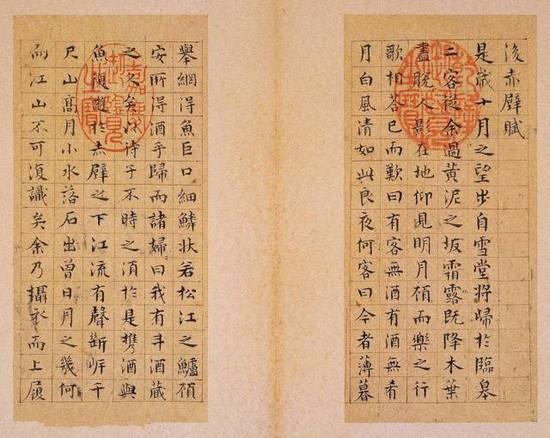 後赤壁賦
是歲十月之望步自雪堂將歸於臨皋
二客從余過黃泥之坂霜露既降木葉
盡脫人影在地仰見明月顧而樂之行
歌相答已而歎曰有客無酒有酒無肴
月白風清如此良夜何客曰今者薄暮
舉網得魚巨口細鱗狀若松江之鱸顧
安所得酒乎歸而諸婦曰我有斗酒藏
之久矣以待子不時之須於是攜酒與
魚復遊於赤壁之下江流有聲斷岸千
尺山高月小水落石出曾日月之幾何
而江山不可復識矣余乃攝衣而上履